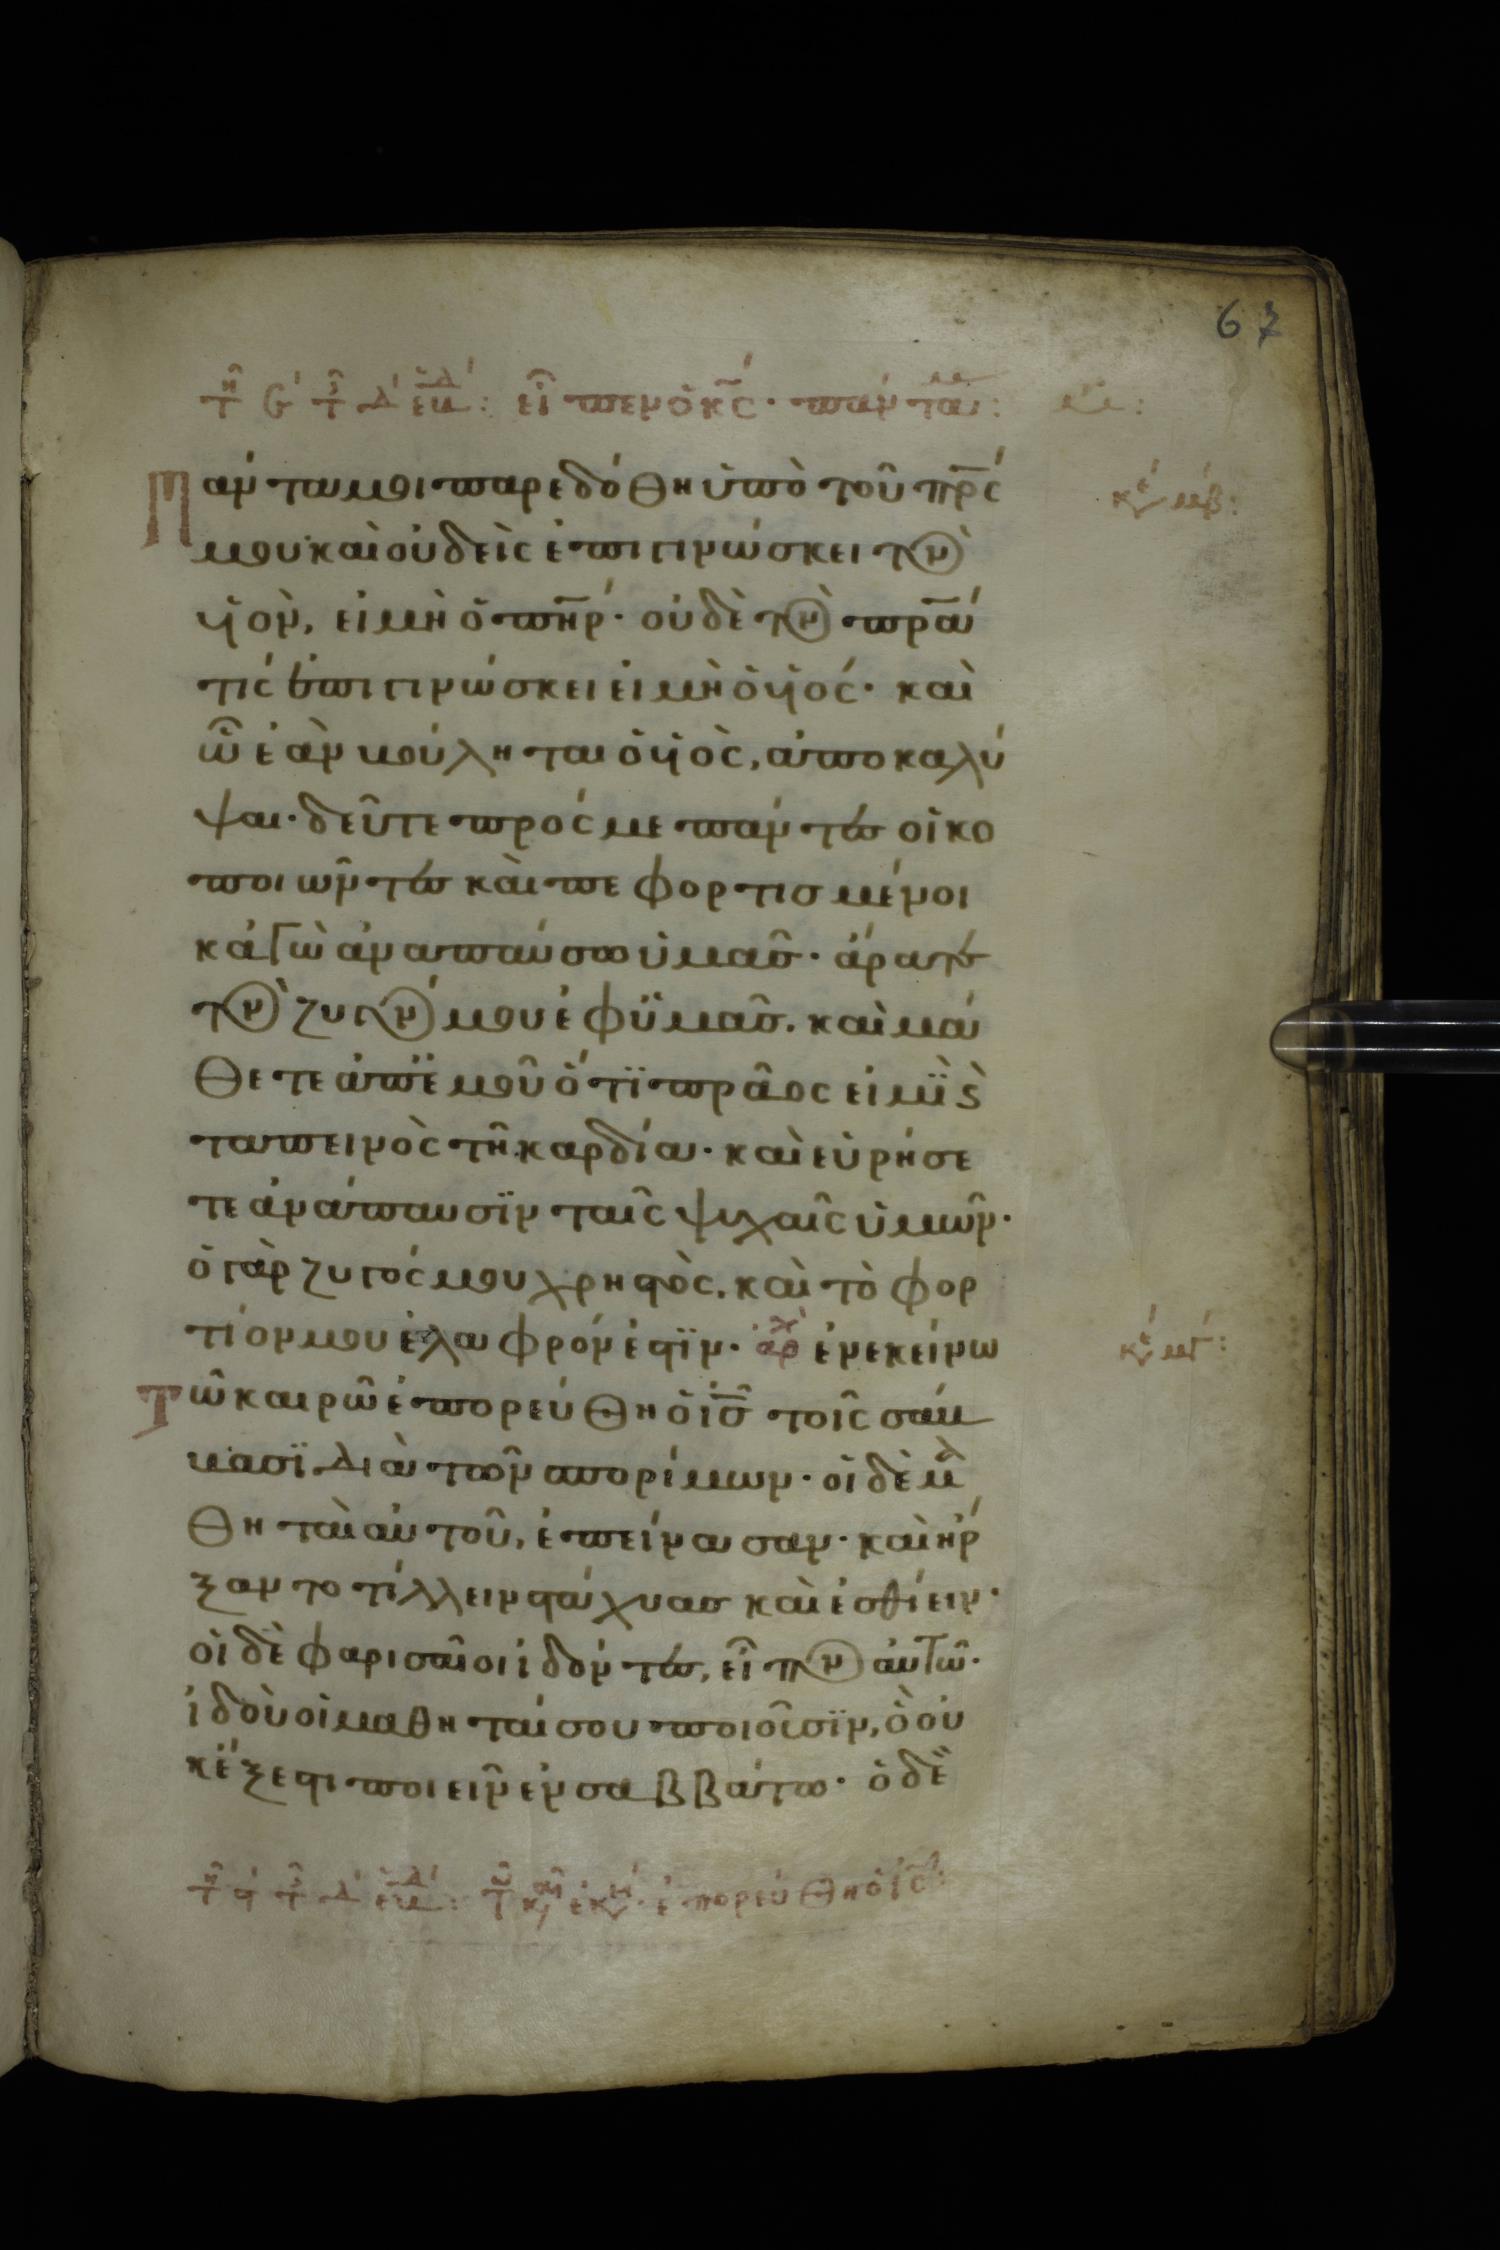 67
τῆ ϛ τῆς δ ἑβδ: εἶπεν ὁ κς· πάντα μοι:
Πάντα μοι παρεδόθη ὑπὸ τοῦ πρς
κε μβ:
μου· καὶ οὐδεὶς ἐπιγινώσκει τὸν
υἱὸν, εἰ μὴ ὁ πηρ· οὐδὲ τὸν πρα
τίς ἐπιγινώσκει εἰ μὴ ὁ υἱός· καὶ
ὧ ἐὰν βούληται ὁ υἱὸς, ἀποκαλύ
ψαι· δεῦτε πρός με πάντες οἱ κο
ποιῶντες καὶ πεφορτισμένοι
κἀγὼ ἀναπαύσω ὑμᾶς· ἄρατε
τὸν ζυγόν μου ἐφ ὑμᾶς. καὶ μά
θετε ἀπ ἐμοῦ ὅτι πρᾶος εἰμὶ ϗ
ταπεινὸς τῆ καρδία· καὶ εὑρήσε
τε ἀνάπαυσιν ταῖς ψυχαῖς ὑμῶν·
ὁ γὰρ ζυγός μου χρηστὸς. καὶ τὸ φορ
τίον μου ἐλαφρόν ἐστιν· ἀρχ ἐν εκείνω
κε μγ:
Τῶ καιρῶ ἐπορεύθη ὁ ις τοῖς σάβ
βασι διὰ τῶν σπορίμων· οἱ δὲ μα
θηταὶ αὐτοῦ, ἐπείνασαν· καὶ ἤρ
ξαντο τίλλειν στάχυας καὶ ἐσθίειν·
οἱ δὲ φαρισαῖοι ἰδόντες, εἶπον αὐτῶ·
ἰδοὺ οἱ μαθηταί σου ποιοῦσιν, ὃ οὐ
κ ἔξεστι ποιεῖν ἐν σαββάτω· ὁ δὲ
ἐπορεύθη ὁ ις